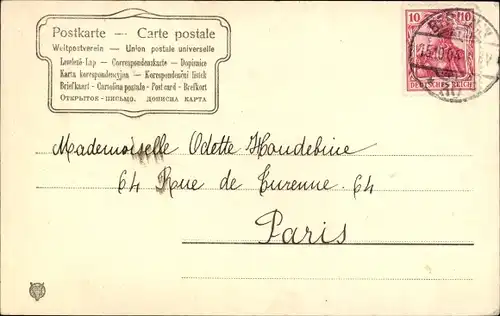 Postkarte — Carte postale
Weltpostverein — Union postale universelle
Levelező-Lap — Correspondenzkarte — Dopisnice
Karta korespondencyjna — Korespondenční lístek
Briefkaart - Cartolina postale - Post card - Brefkort
Открытое письмо. Дописна карта
10 10
DEUTSCHES REICH
Mademoiselle Odette Houdebine
64 Rue de Turenne. 64
Paris